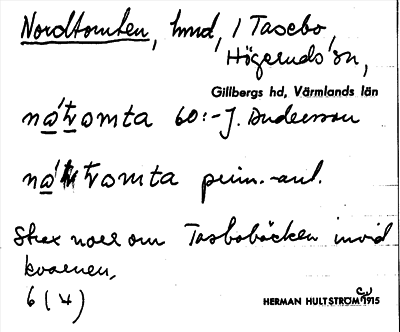 Nordtomten, hmd, / Tasebo,
Högeruds sn,
Gillbergs hd, Värmlands län
na'tvomta 60:- J. Andersson
na'tvomta prim.-anl.
Strax norr om Tasbobäcken invid
kvarnen,
6 (4)
HERMAN HULTSTRÖM 1915